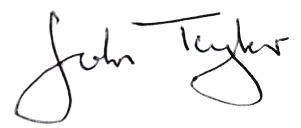 John Taylor